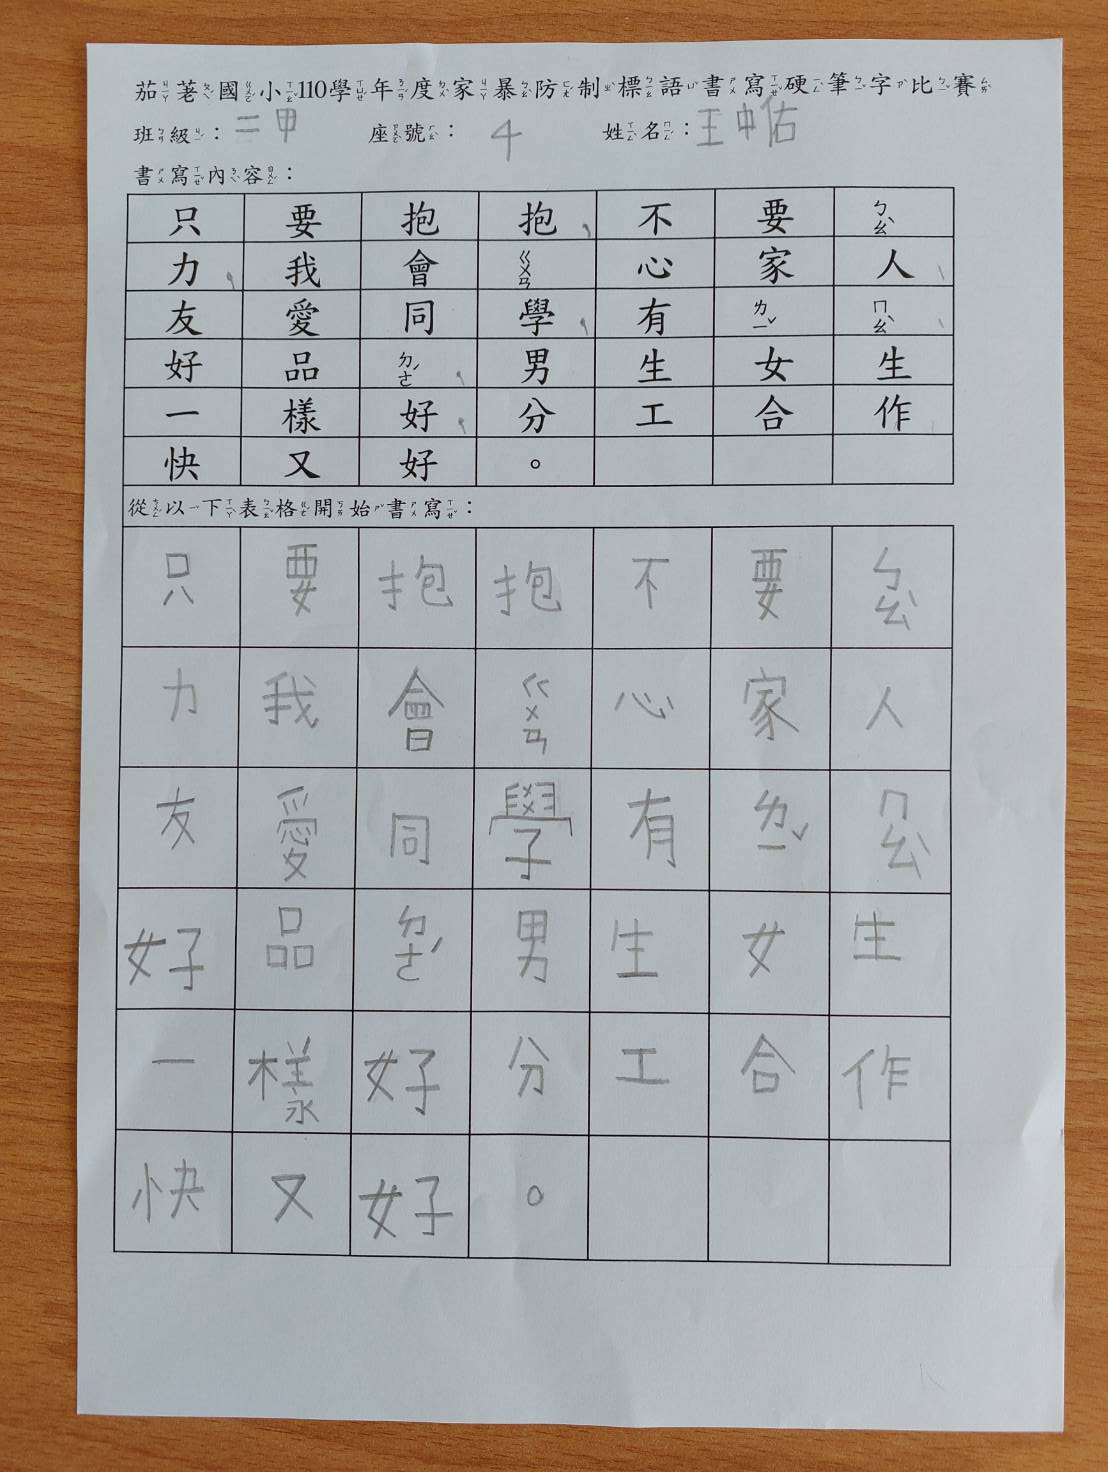 茄荖國小110學年度家暴防制標語書寫硬筆字比賽
班級：二甲 座號：4 姓名：王中佑
書寫內容：
只要抱抱，不要ㄅㄠˋ
力，我會ㄍㄨㄢ心家人、
友愛同學，有ㄌㄧˇㄇㄠˋ、
好品ㄉㄜˊ，男生女生
一樣好，分工合作、
快又好。
從以下表格開始書寫：
只要抱抱不要ㄅㄠˋ
力我會ㄍㄨㄢ心家人
友愛同學有ㄌㄧˇㄇㄠˋ
好品ㄉㄜˊ男生女生
一樣好分工合作
快又好。